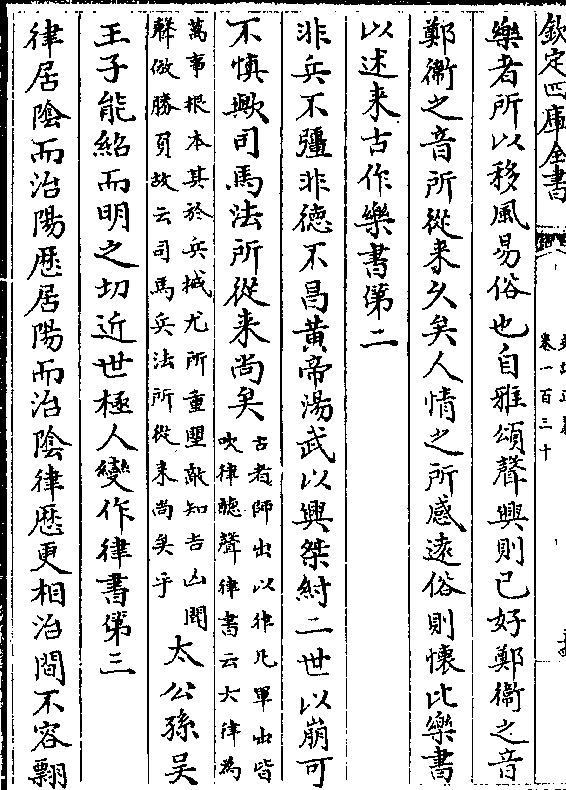 欽定四庫全書
卷一百三十
樂者所以移風易俗也自雅頌聲興則已好鄭衞之音
鄭衞之音所從来久矣人情之所感逺俗則懐比樂書
以述来古作樂書第二
非兵不彊非德不昌黄帝湯武以興桀紂二世以崩可
不慎歟司馬法所從来尚矣古者師出以律凡軍出皆
吹律聽聲律書云六律為
萬事根本其於兵械尤所重望敵知吉凶聞
聲傚勝負故云司馬兵法所從来尚矣乎太公孫吴
王子能紹而明之切近世極人變作律書第三
律居隂而治陽厯居陽而治隂律厯更相治間不容翲